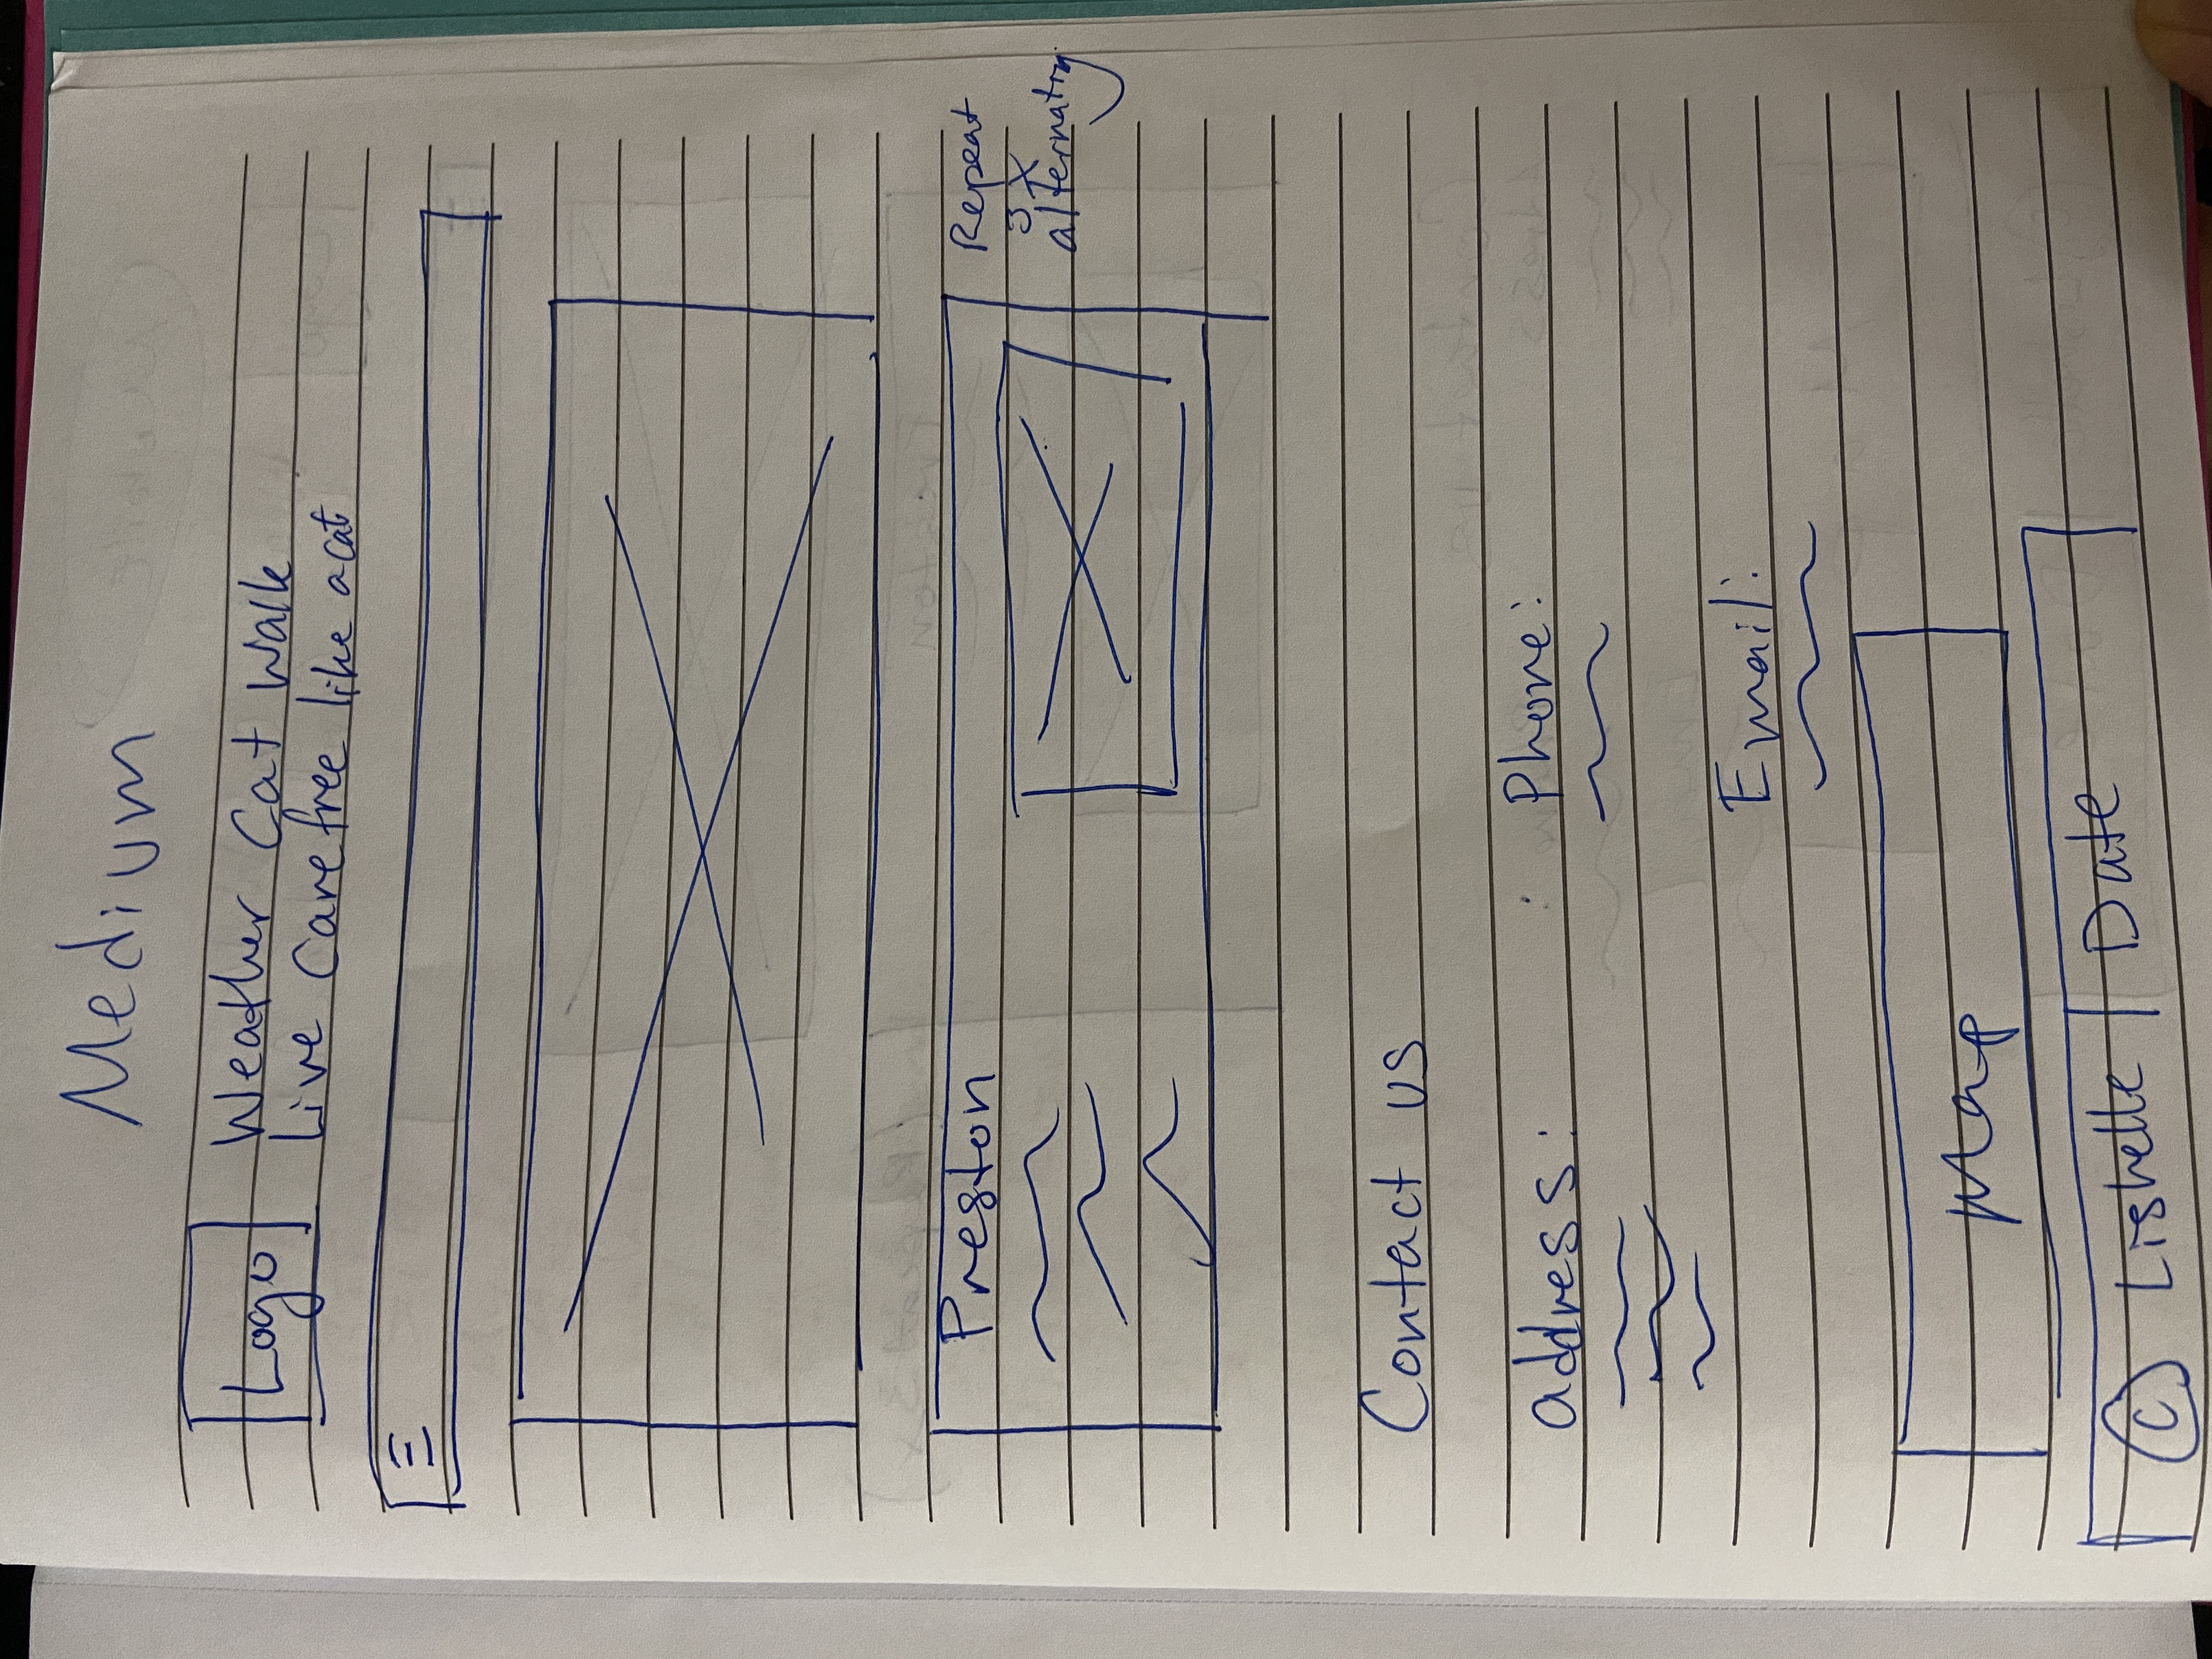 Medium
Logo
Weather Cat Walk
Live Carefree like a cat
Preston
Repeat
3x
alternating
Contact us
address:
Phone:
Email:
Map
© Lishelle | Date